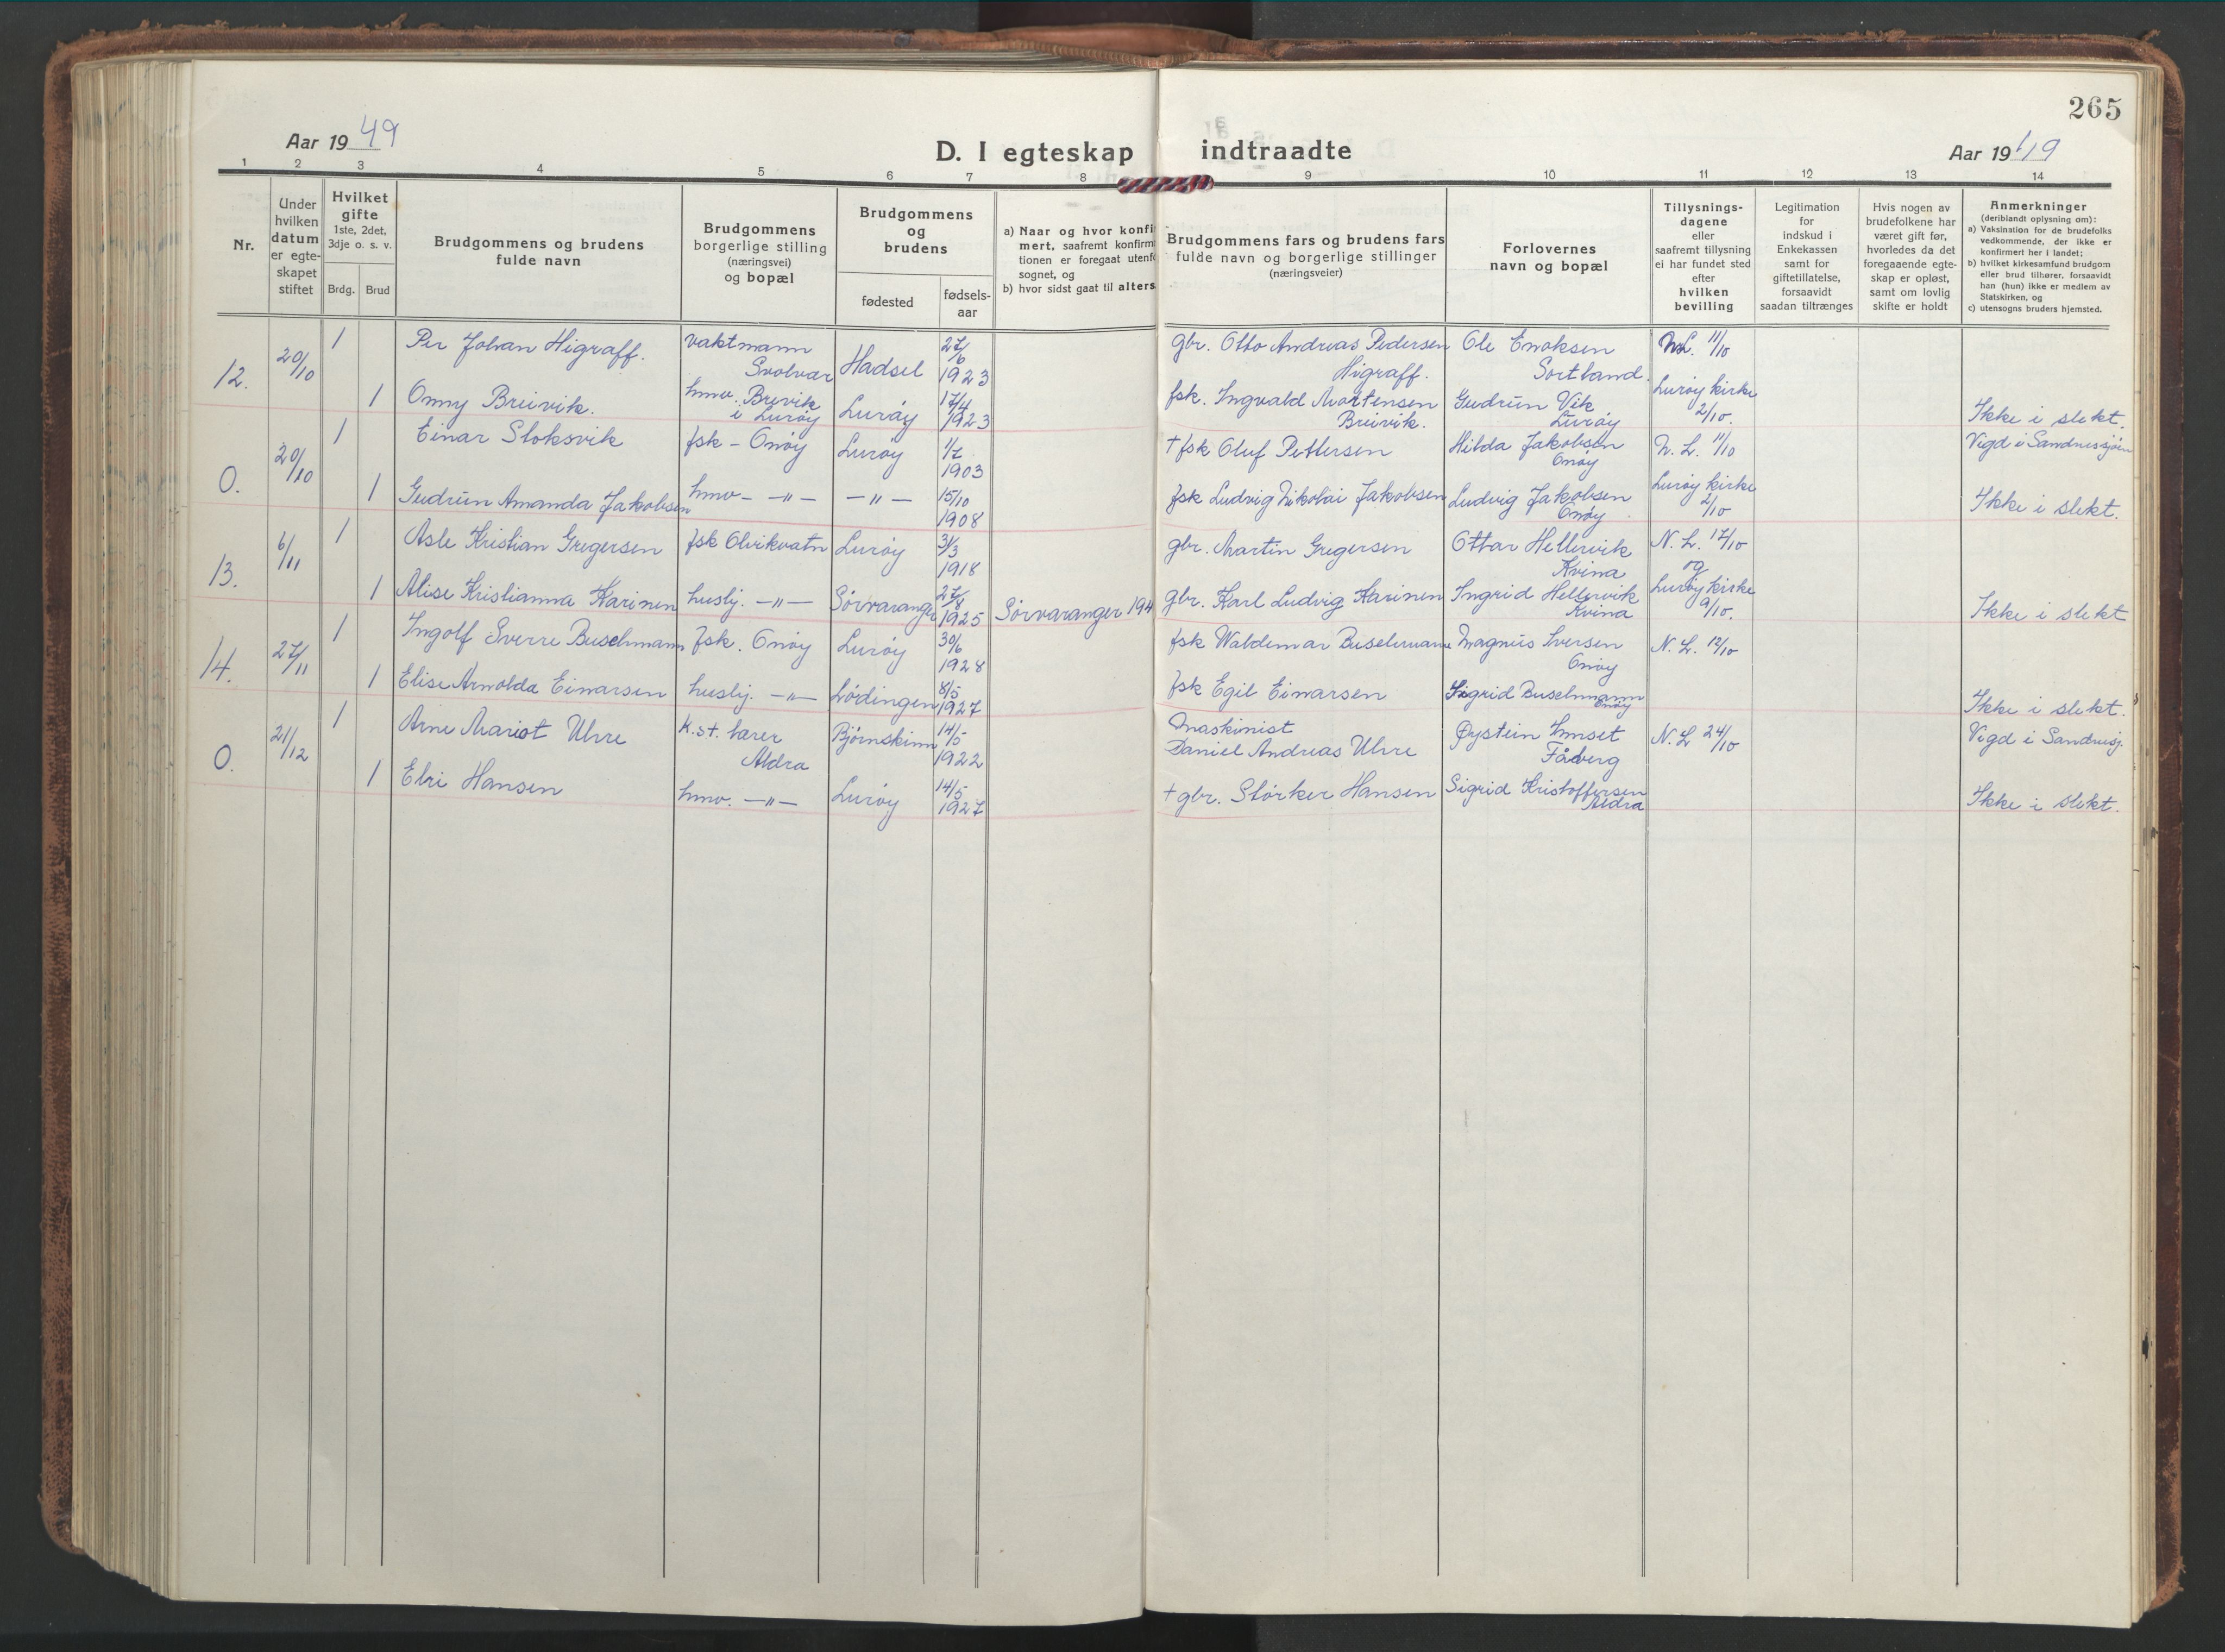 265
Aar 1949
D. I egteskap indtraadte
Aar 1949
1 2 3 4 5 6 7 8 9 10 11 12 13 14
Nr.
Under
hvilken
datum
er egte-
skapet
stiftet
Hvilket
gifte
1ste, 2det,
3dje o. s. v.
Brdg. Brud
Brudgommens og brudens
fulde navn
Brudgommens
borgerlige stilling
(næringsvei)
og bopæl
Brudgommens
og
brudens
fødested
fødsels-
aar
a) Naar og hvor konfi
mert, saafremt konfirm
tionen er foregaat utenf
sognet, og
b) hvor sidst gaat til alters
Brudgommens fars og brudens fars
fulde navn og borgerlige stillinger
(næringsveier)
Forlovernes
navn og bopæl
Tillysnings-
dagene
eller
saafremt tillysning
ei har fundet sted
efter
hvilken
bevilling
Legitimation
for
indskud i
Enkekassen
samt for
giftetillatelse,
forsaavidt
saadan tiltrænges
Hvis nogen av
brudefolkene har
været gift før,
hvorledes da det
foregaaende egte-
skap er opløst,
samt om lovlig
skifte er holdt
Anmerkninger
(deriblandt oplysning om):
a) Vaksination for de brudefolks
vedkommende, der ikke er
konfirmert her i landet;
b) hvilket kirkesamfund brudgom
eller brud tilhører, forsaavidt
han (hun) ikke er medlem av
Statskirken, og
c) utensogns bruders hjemsted.
12.
20/10
1
Per Johan Higraff.
vaktmann
Svolvær
Hadsel
27/6
1923
gbr. Otto Andreas Pedersen
Higraff.
Ole Enoksen
Sortland.
N.L. 11/10
1
Onny Breivik.
hmv. Brevik
i Lurøy
Lurøy
17/4
1923
fsk. Ingvald Mortensen
Breivik.
Gudrun Vik
Lurøy
Lurøy kirke
2/10.
Ikke i slekt.
0.
20/10
1
Einar Stoksvik
fsk - Onøy
Lurøy
1/7
1903
† fsk Oluf Pettersen
Hilda Jakobsen
Onøy
N. L. 11/10
Vigd i Sandnessjøen
1
Gudrun Amanda Jakobsen
hmv - -"-
-"-
15/10
1908
fsk Ludvig Nikolai Jakobsen
Ludvig Jakobsen
Onøy
Lurøy kirke
2/10
Ikke i slekt.
13.
6/11
1
Asle Kristian Gregersen
fsk Olvikvatn
Lurøy
31/3
1918
gbr. Martin Gregersen
Ottar Hellervik
Kvina
N. L. 17/10
og
1
Alise Kristianna Karinen
huslj. -"-
Sørvaranger
27/8
1925
Sørvaranger 194
gbr. Karl Ludvig Karinen
Ingrid Hellervik
Kvina
Lurøy kirke
9/10.
Ikke i slekt
14.
27/11
1
Ingolf Sverre Buschmann
fsk. Onøy
Lurøy
30/6
1928
fsk Waldemar Buschmann
Magnus Iversen
Onøy
N. L. 12/10
1
Elise Arnolda Einarsen
huslj. -"-
Lødingen
8/5
1927
fsk Egil Einarsen
Sigrid Buschmann
Onøy
Ikke i slekt.
0.
21/12
1
Arne Mariot Uhre
K.st. lærer
Aldra
Bjørnskinn
14/5
1922
Maskinist
Daniel Andreas Uhre
Øystein Imset
Fåberg
N. L 24/10
Vigd i Sandnesj.
1
Elri Hansen
hmv. -"-
Lurøy
14/5
1927
† gbr. Størker Hansen
Sigrid Kristoffersen
Aldra
Ikke i slekt.